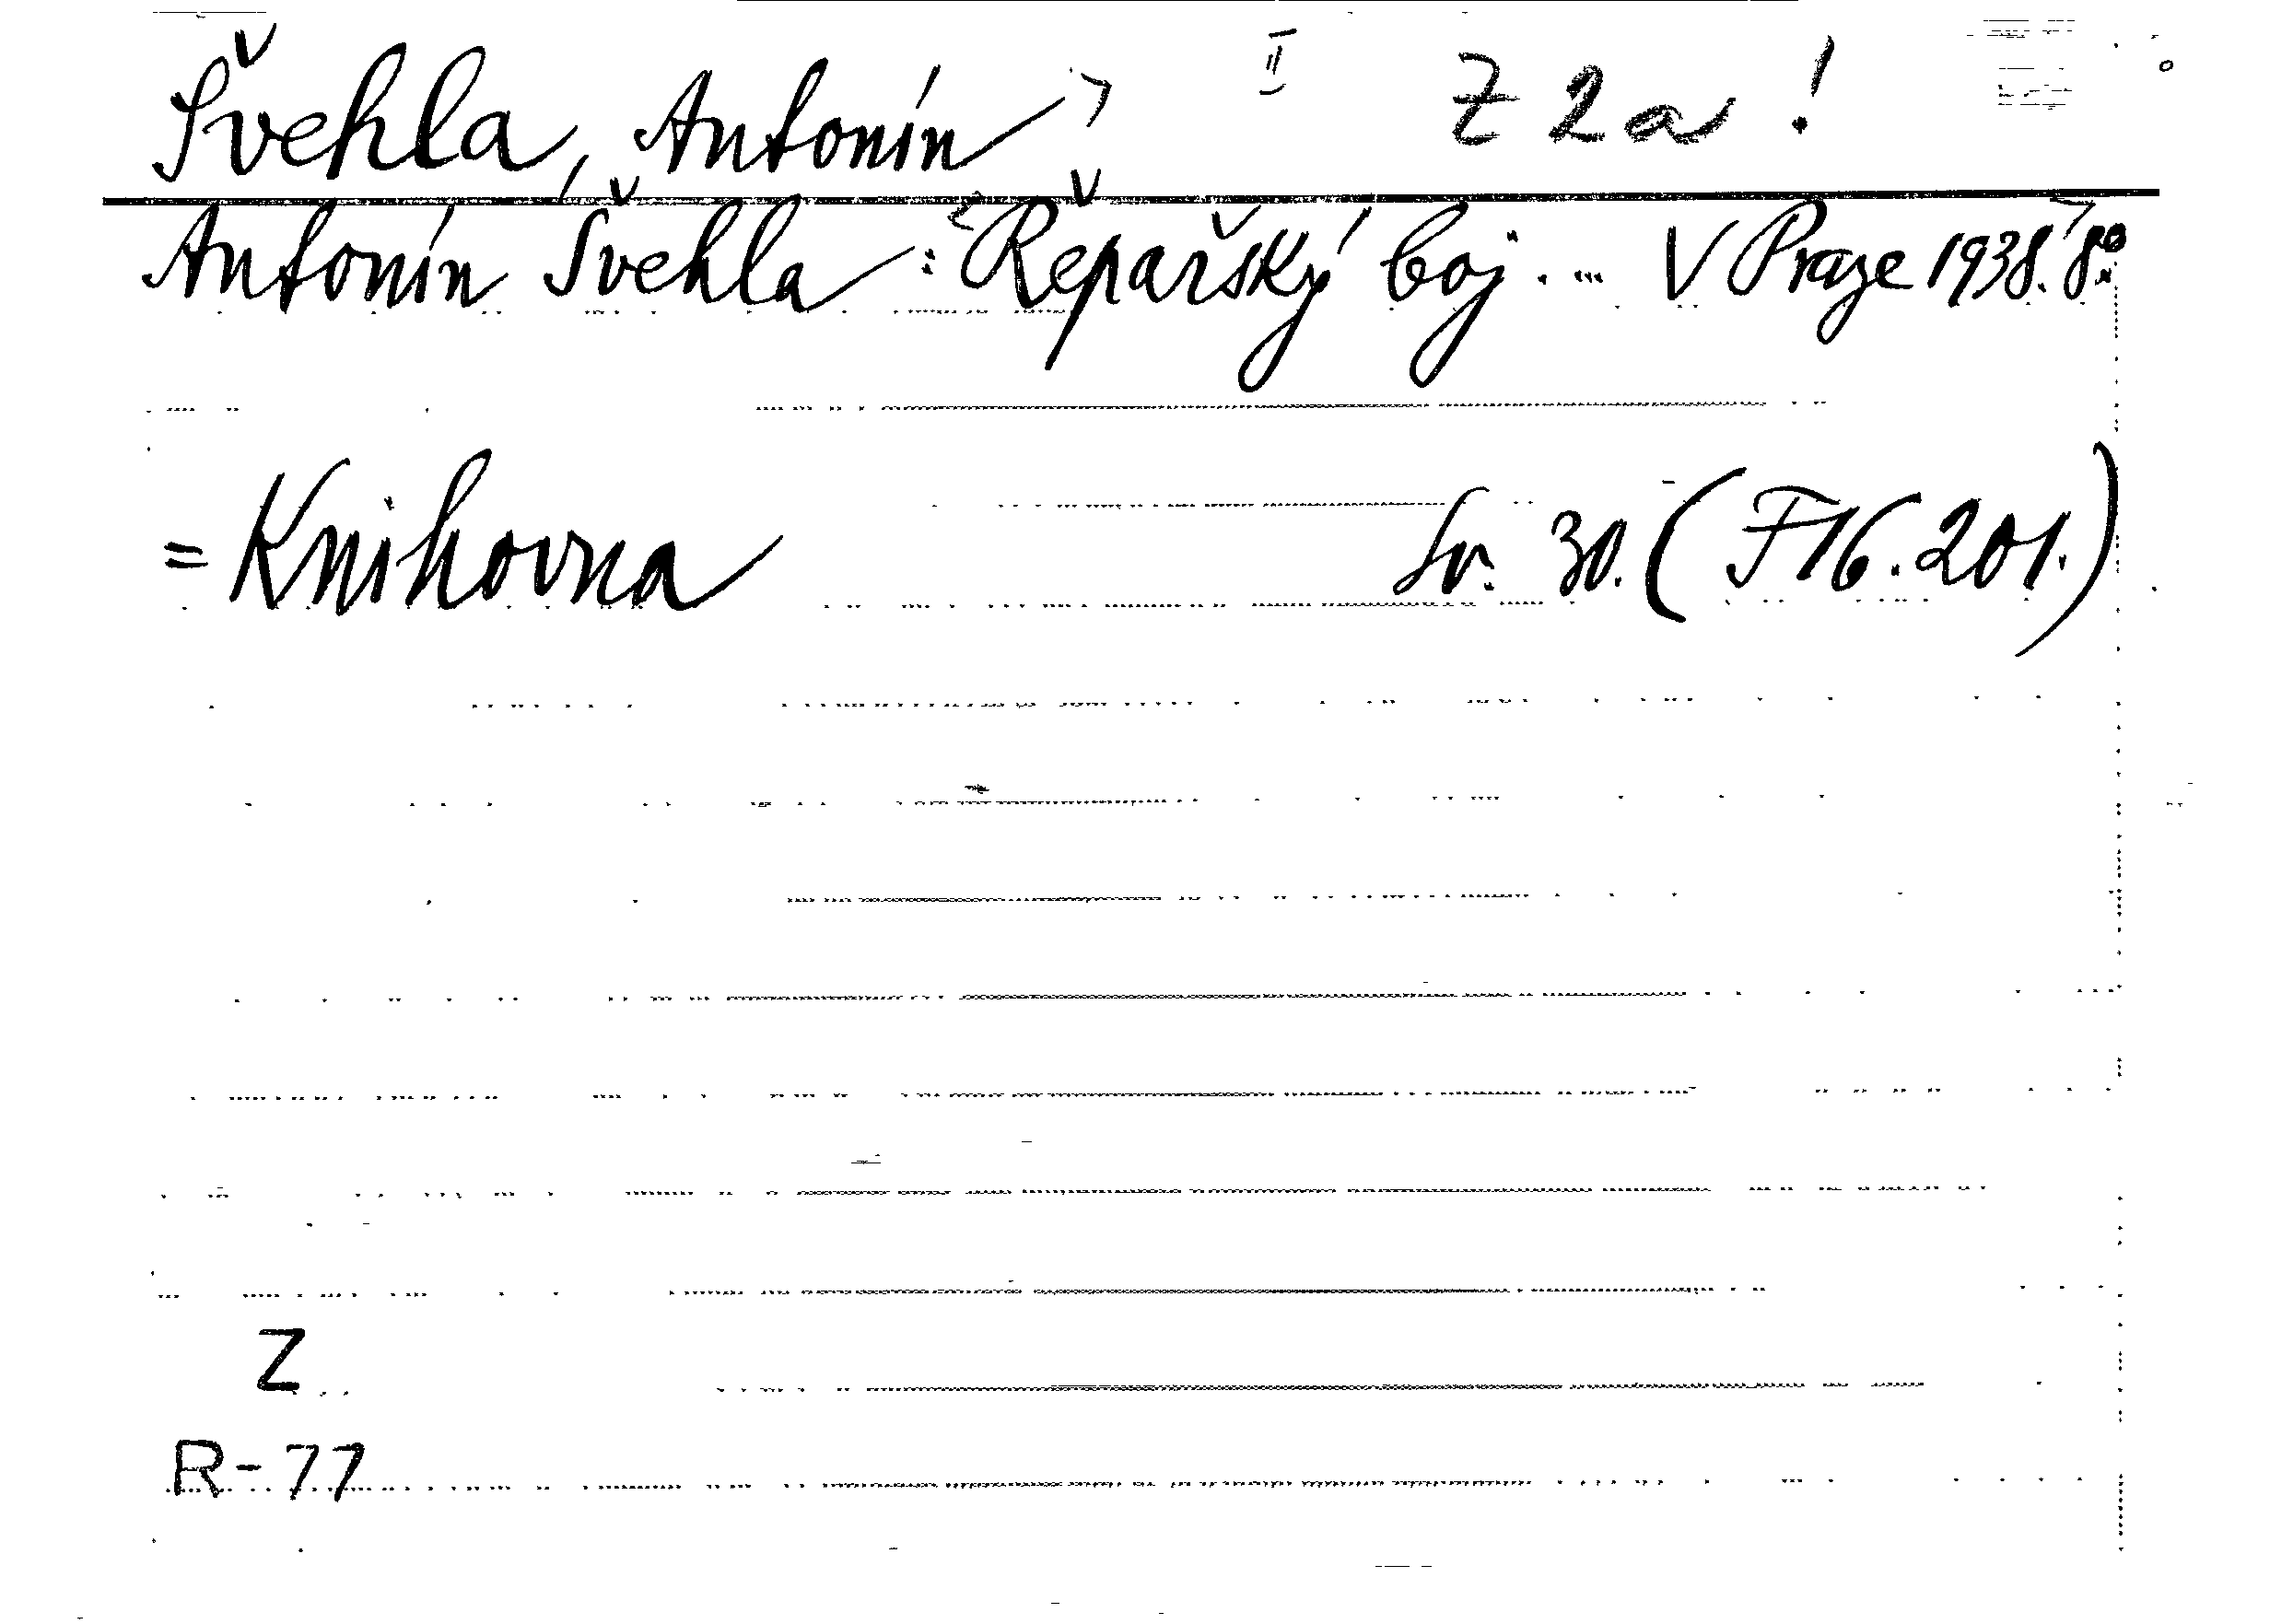 Švehla, Antonín I Z 2a!
Antonín Švehla: Řepařský boj. ... V Praze 1938. 8°.
= Knihovna Sv. 30. (F 16.201.)
Z
R-77